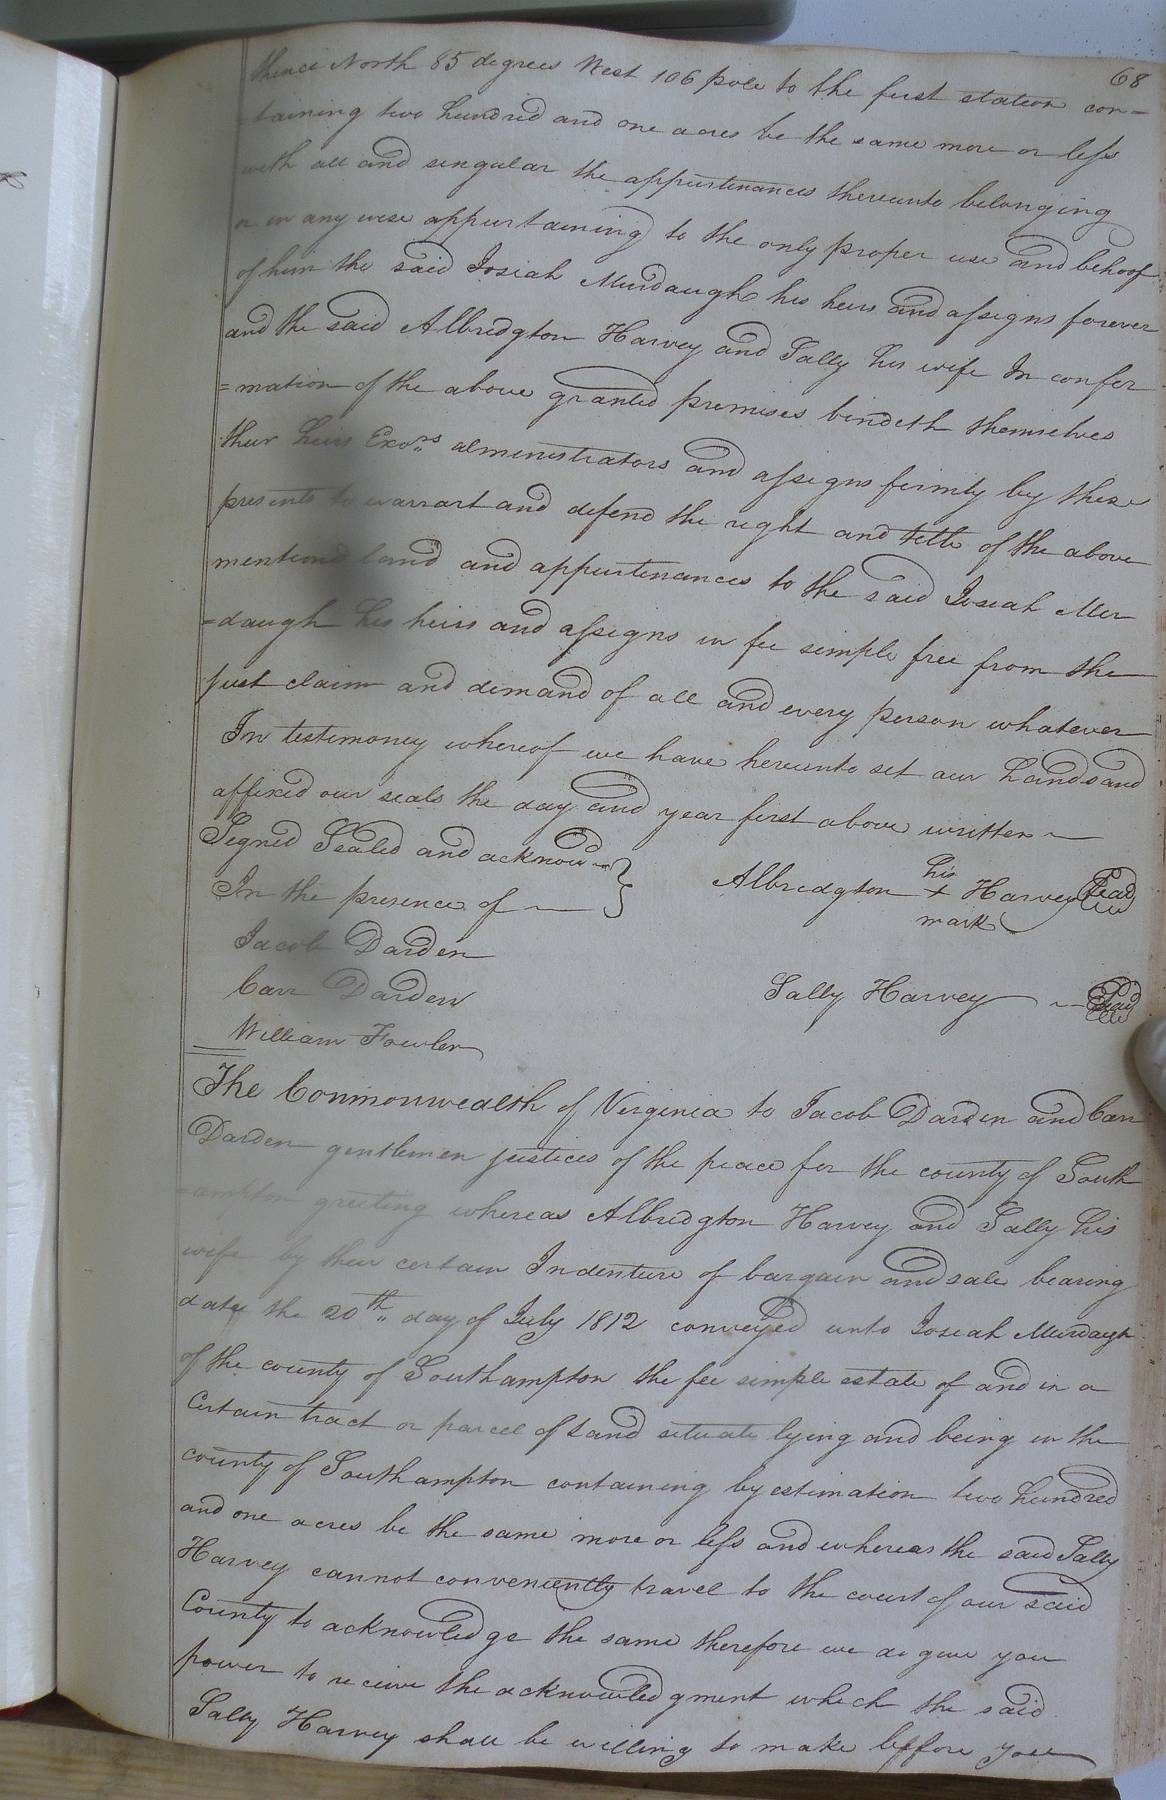 68
thence North 85 degrees West 106 pole to the first station con=
=taining two hundred and one acres be the same more or less
with all and singular the appurtenances thereunto belonging
or in any wise appurtaining to the only proper use and behoof
of him the said Josiah Murdaugh his heirs and assigns forever
and the said Albredgton Harvey and Sally his wife In confer
=mation of the above granted premises bindeth themselves
their heirs Exors administrators and assigns firmly by these
presents to warrart and defend the right and title of the above
mentioned land and appurtenances to the said Josiah Mur
=daugh his heirs and assigns in fee simple free from the
just claim and demand of all and every person whatever
In testimoney whereof we have hereunto set our hands and
affixed our seals the day and year first above written
Signed Sealed and acknowd
In the presence of
his
Albredgton + Harvey Seal
mark
Jacob Darden
Carr Darden
Sally Harvey Seal
William Fowler
The Commonwealth of Virginia to Jacob Darden and Carr
Darden gentlemen justices of the peace for the county of South
=ampton greeting whereas Albredgton Harvey and Sally his
wife by their certain Indenture of bargain and sale bearing
date the 20th day of July 1812 conveyed unto Josiah Murdaugh
of the county of Southampton the fee simple estate of and in a
Certain tract or parcel of land situate lying and being in the
county of Southampton containing by estimation two hundred
and one acres be the same more or less and whereas the said Sally
Harvey cannot conveniently travel to the court of our said
County to acknowledge the same therefore we do give you
power to receive the acknowledgment which the said
Sally Harvey shall be willing to make before you